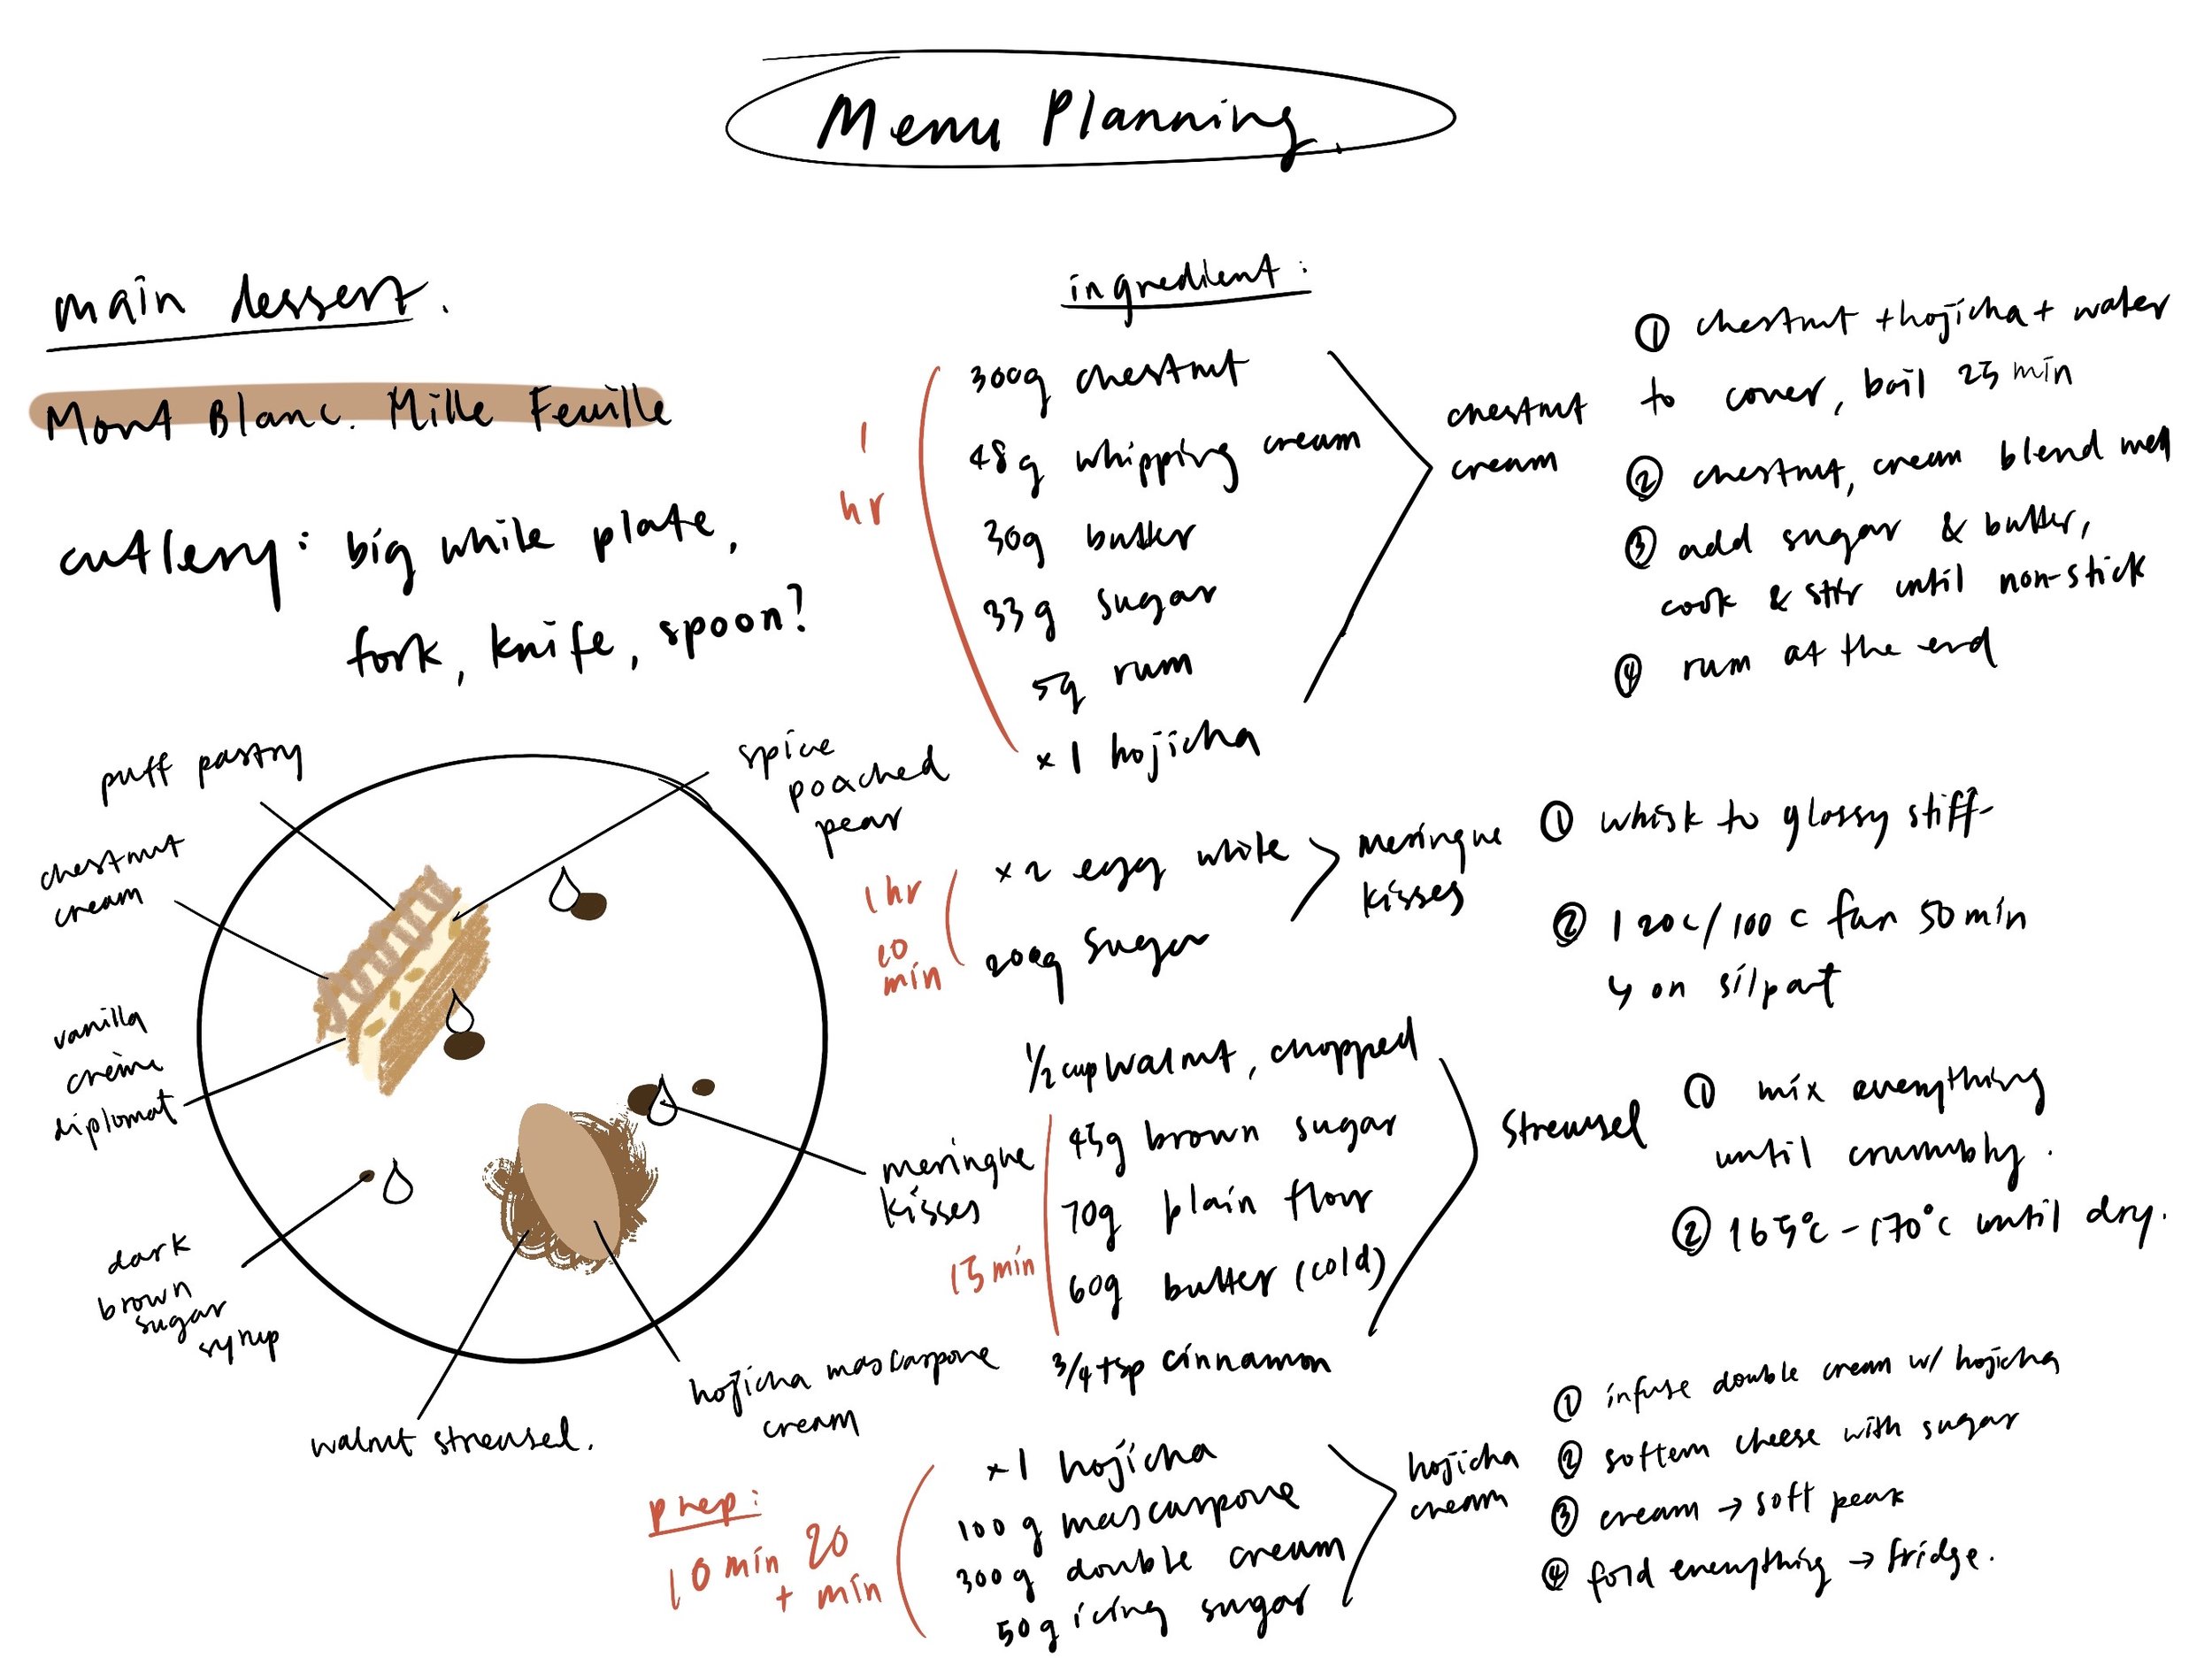 Menu Planning.
main dessert.
Mont Blanc. Mille Feuille
cutlery: big white plate,
fork, knife, spoon?
puff pastry
chestnut
cream
vanilla
crème
diplomat
dark
brown
sugar
syrup
walnut streusel.
hojicha mascarpone
cream
meringue
kisses
spice
poached
pear
ingredient:
1
hr
300g chestnut
48g whipping cream
30g butter
33g sugar
5g rum
×1 hojicha
chestnut
cream
① chestnut + hojicha + water
to cover, boil 25 min
② chestnut, cream blend well
③ add sugar & butter,
cook & stir until non-stick
④ rum at the end
1hr
20
min
×2 egg white
200g sugar
meringue
kisses
① whisk to glossy stiff
② 120c/100c fan 50min
↳ on silpat
1/2 cup walnut, chopped
45g brown sugar
70g plain flour
60g butter (cold)
3/4 tsp cinnamon
15 min
streusel
① mix everything
until crumbly.
② 165°c - 170°c until dry.
prep:
10 min 20
+ min
×1 hojicha
100g mascarpone
300g double cream
50g icing sugar
hojicha
cream
① infuse double cream w/ hojicha
② soften cheese with sugar
③ cream → soft peak
④ fold everything → fridge.